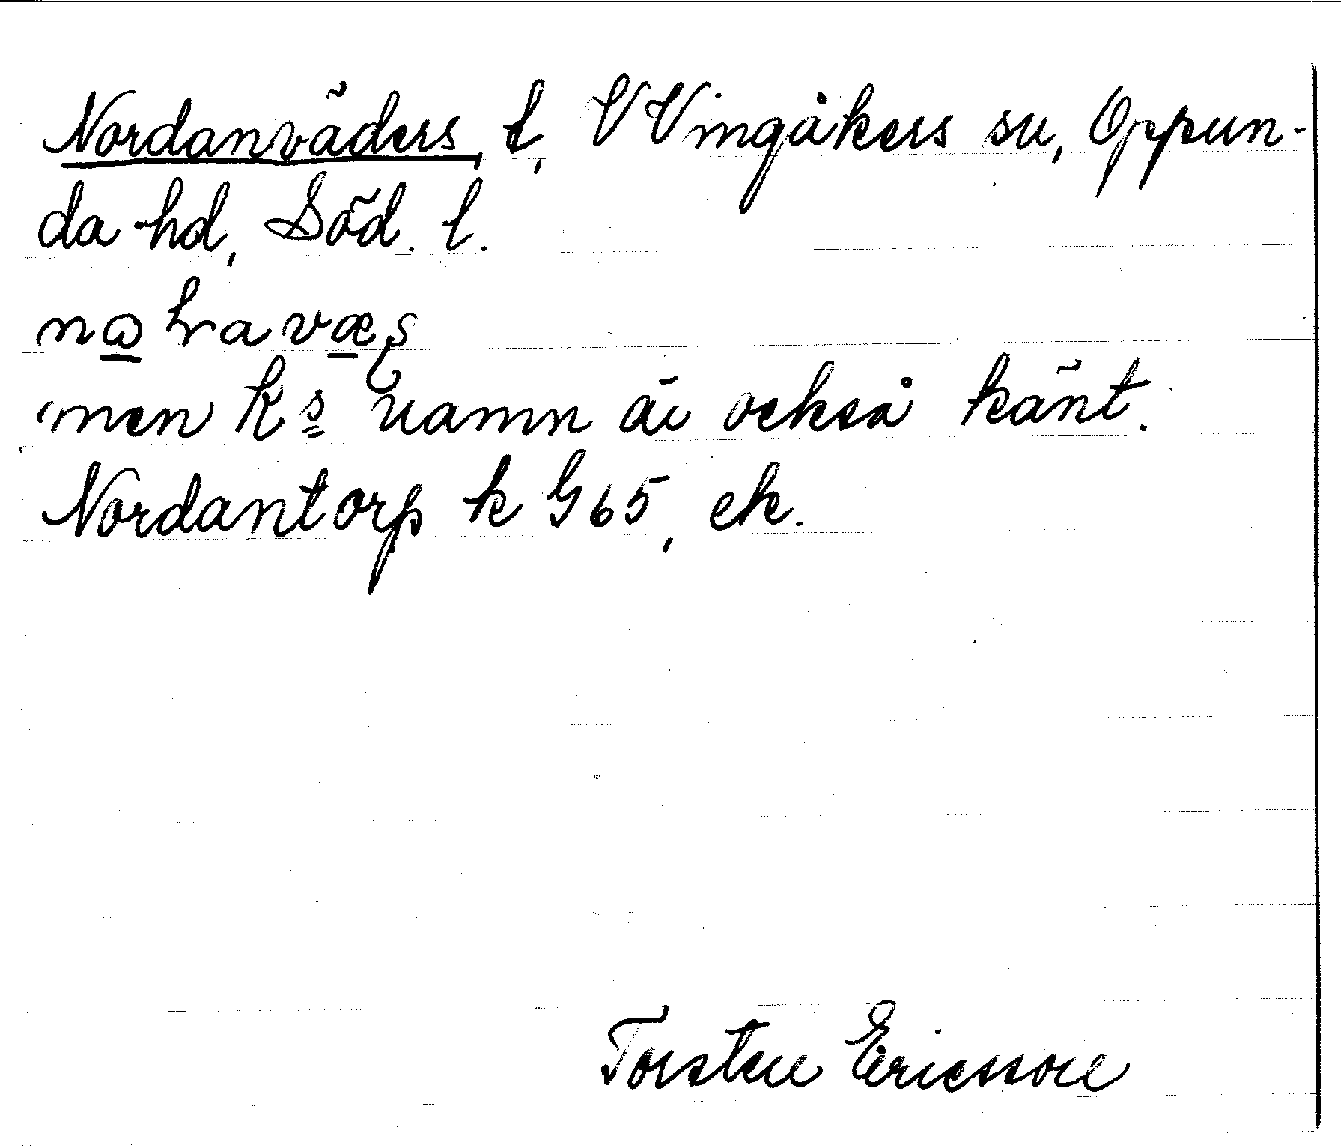 Nordanväders, t, V Vingåkers sn, Oppun-
da hd, Söd. l.
men ks namn är också känt.
Nordantorp k G65, ek.
Torsten Ericsson